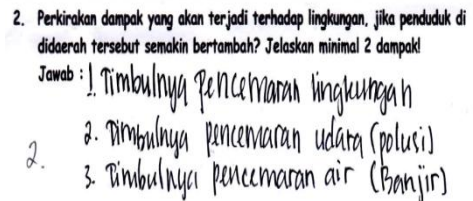 2. Perkirakan dampak yang akan terjadi terhadap lingkungan, jika penduduk di
didaerah tersebut semakin bertambah? Jelaskan minimal 2 dampak!
Jawab : 1. Timbulnya Pencemaran lingkungan
2. Timbulnya pencemaran udara (polusi)
2.
3. Timbulnya pencemaran air (Banjir)